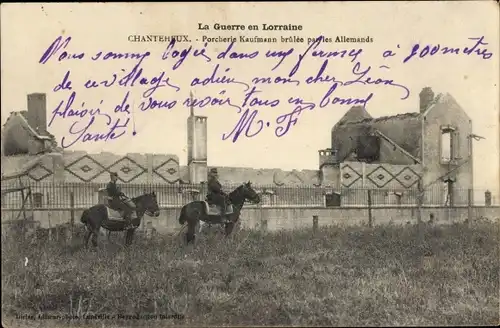 La Guerre en Lorraine
CHANTEHEUX. - Porcherie Kaufmann brûlée par les Allemands
Nous somme logée dans une ferme à 800 metres
de ce village adieu mon cher Léon
plaisir de vous revoir tous en bonne
Santé
M. F
Lunéville - Reproduction interdite